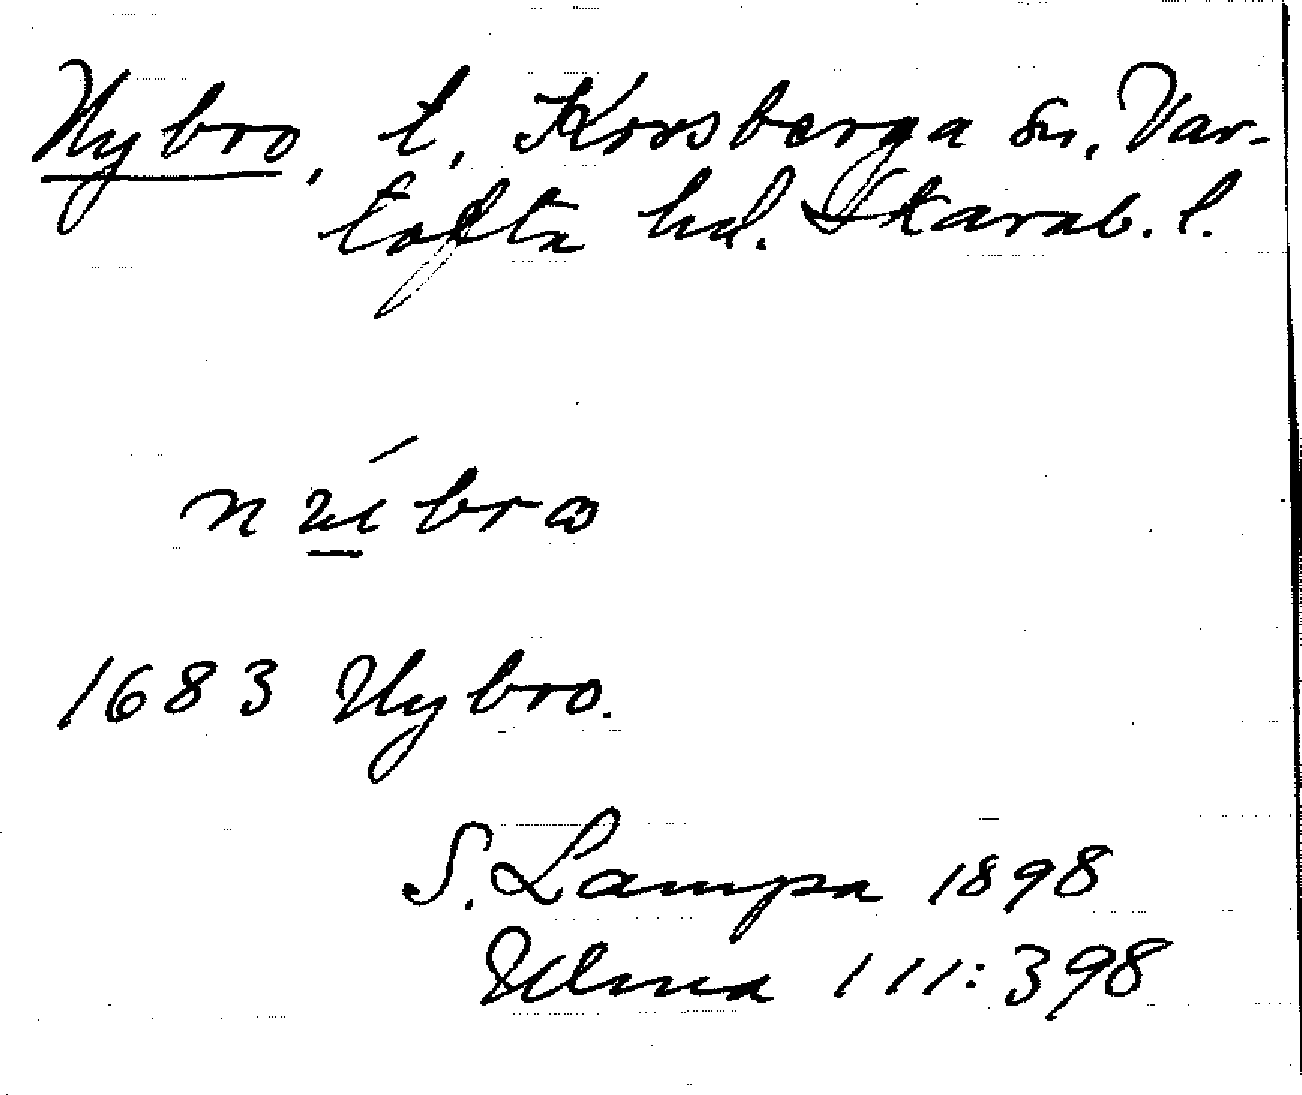 Nybro, t, Korsberga sn, Var-
tofta hd. Skarab. l.
1683 Nybro.
S. Lampa 1898
Ulma 111:398